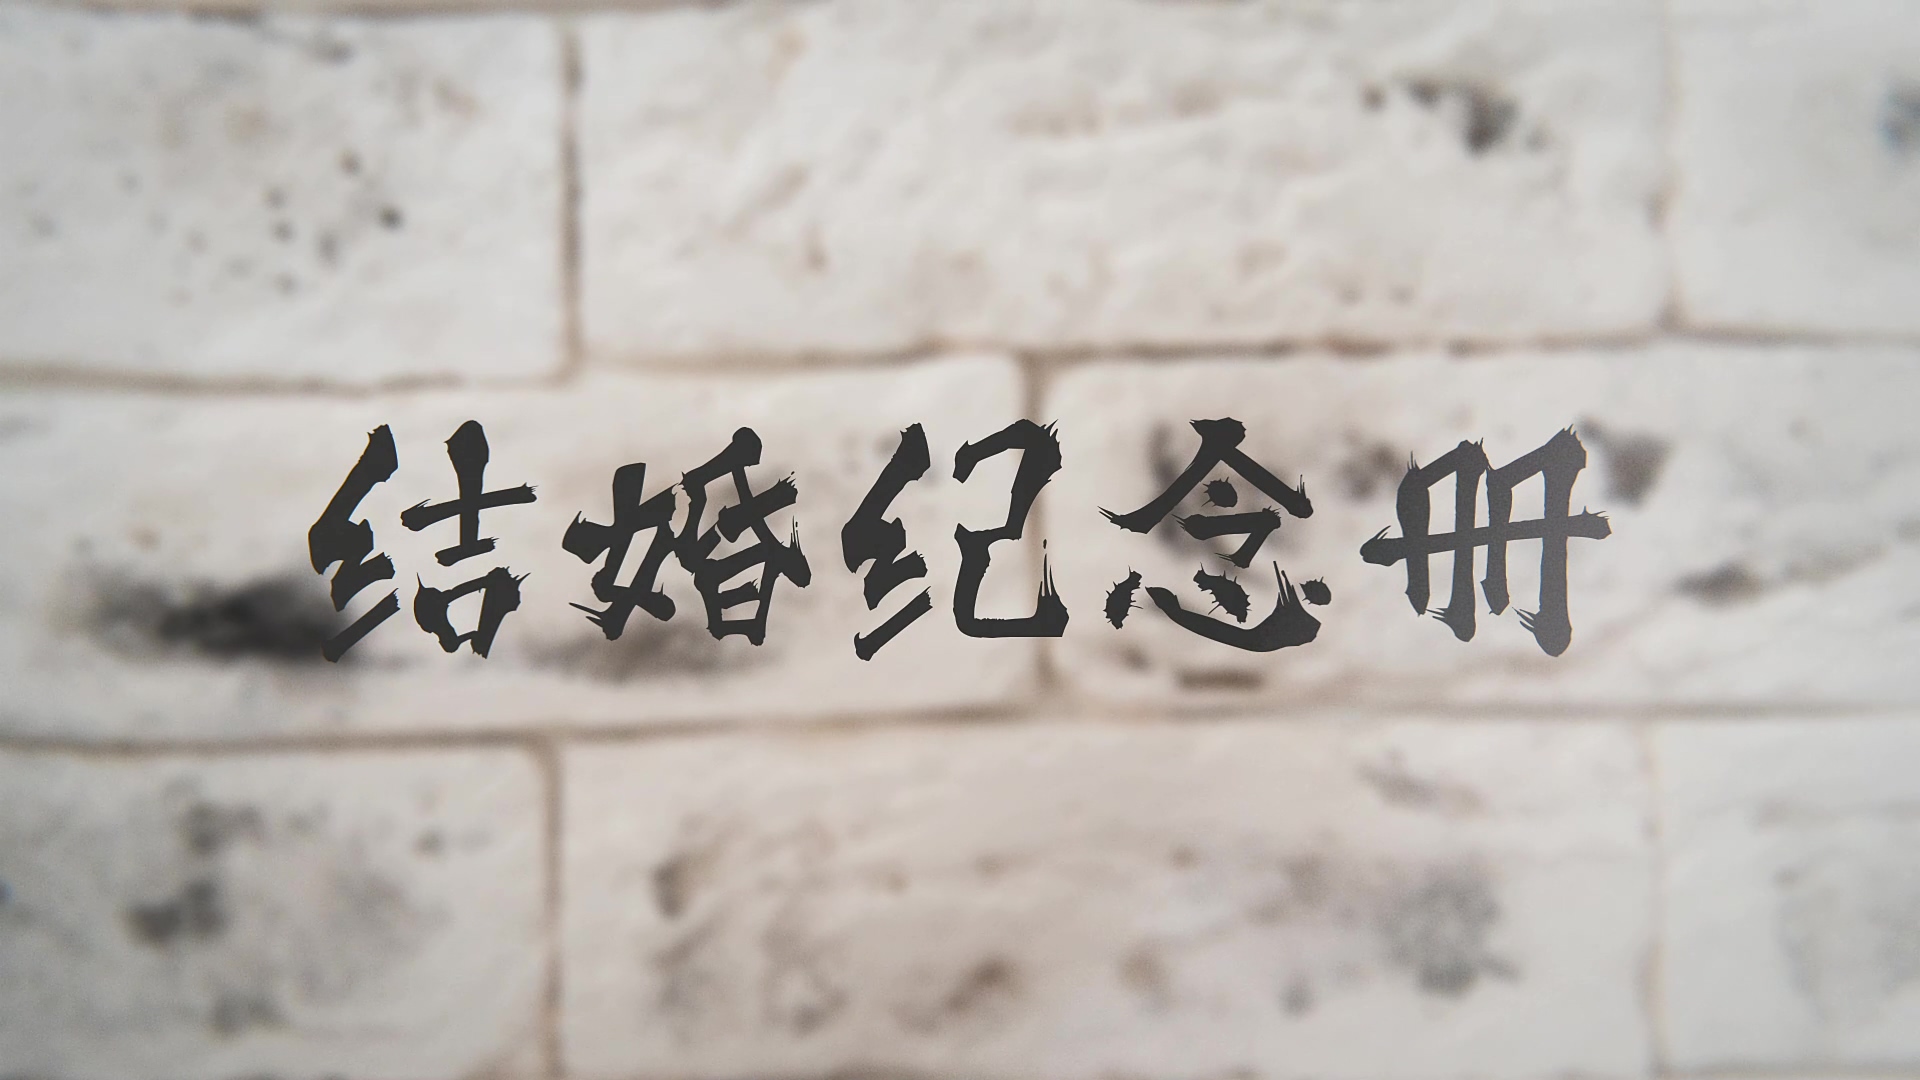 结婚纪念册